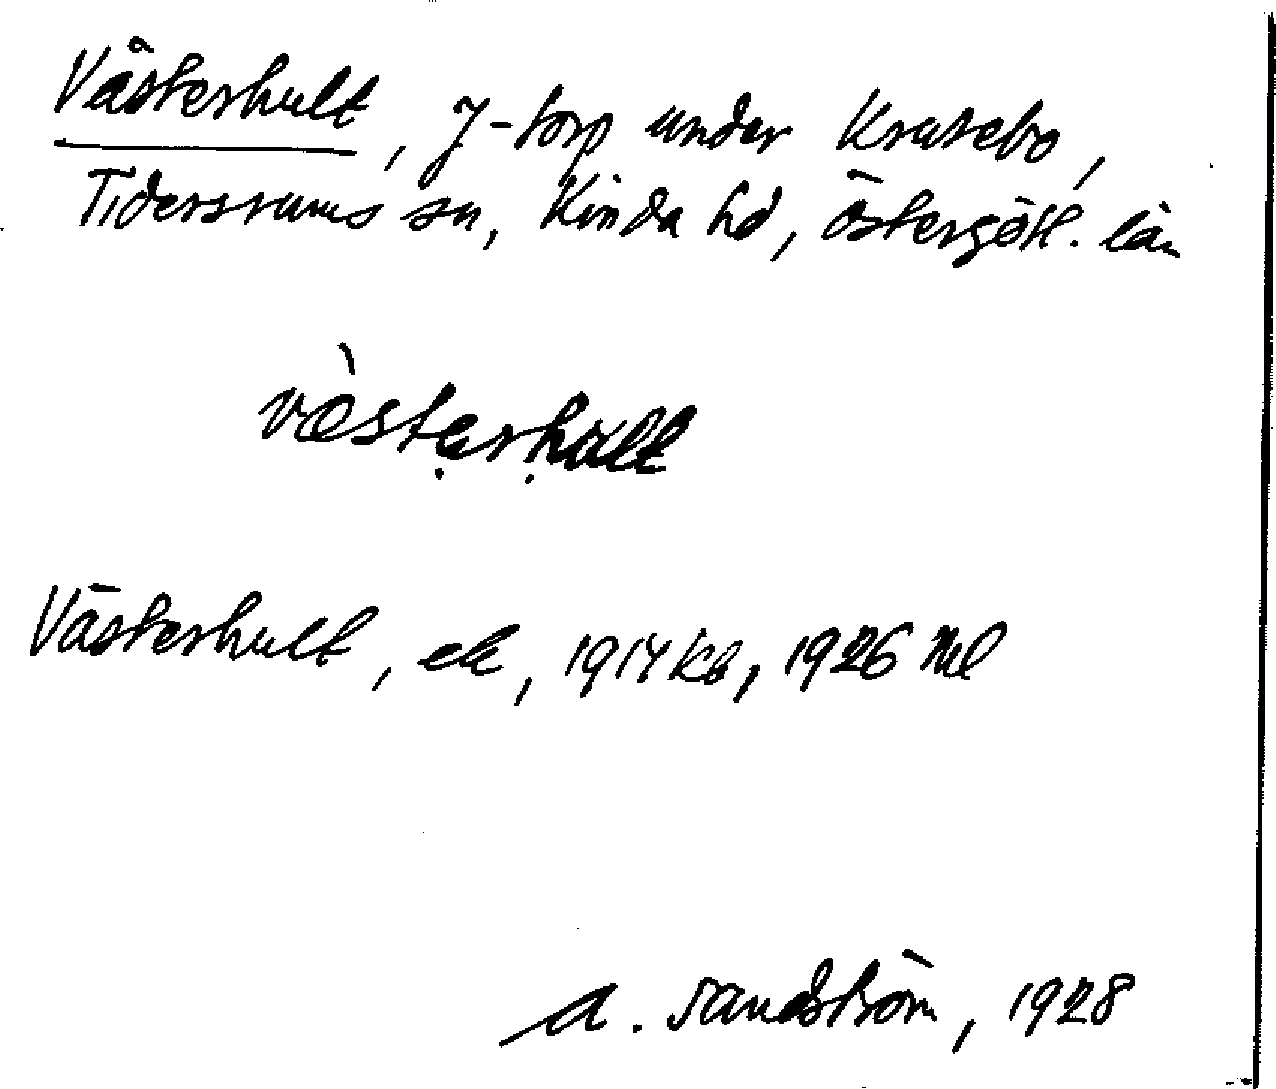 Västerhult, J-torp under Krasebo,
Tidersrums sn, Kinda hd, Östergötl. län
västerhult
Västerhult, ek, 1914 kb, 1926 Ml
A. Sandström, 1928